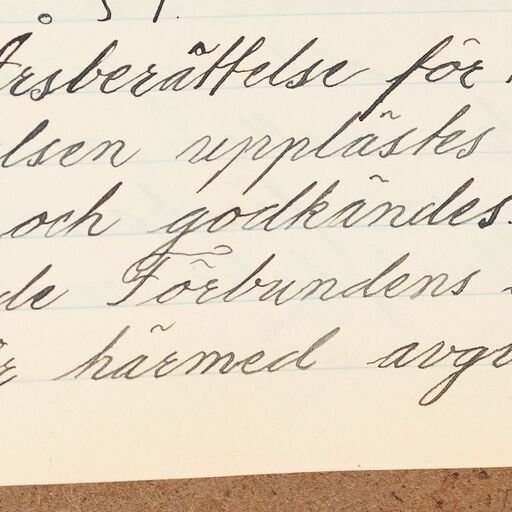 Årsberättelse för
elsen upplästes
och godkändes.
de Förbundens
är härmed avgi